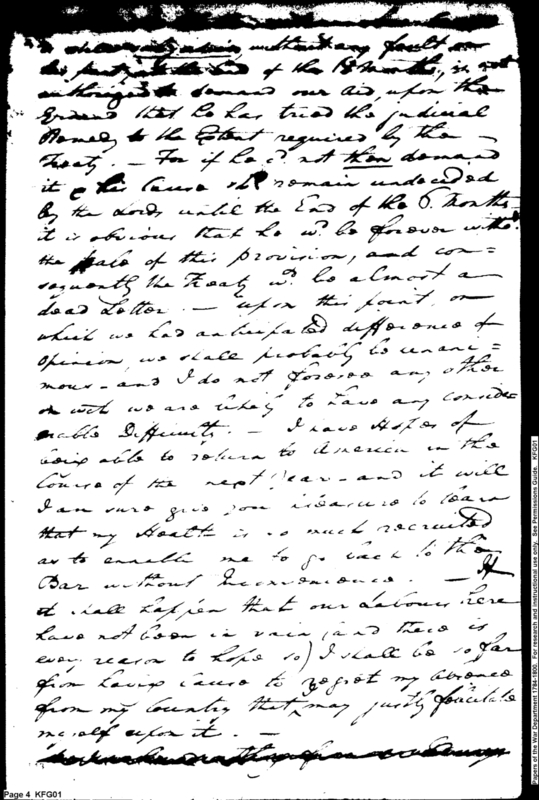 without any fault on
his part, at the End of the 18 Months, is not
authorized to demand our aid, upon the
Ground that he has tried the judicial
Remedy to the Extent required by the
Treaty. — For if he cd not then demand
it & his Cause shd remain undecided
by the Lords until the End of the 6 Months
it is obvious that he wd be forever witht
the of this provision, and con=
sequently the Treaty wd be almost a
dead Letter. — upon this point, on
which we had anticipated difference of
opinion, we shall probably be unani=
mous — and I do not foresee any other
on wch we are likely to have any conside=
rable Difficulty. — I have Hopes of
being able to return to America in the
Course of the next Year — and it will
I am sure give you pleasure to learn
that my Health is so much recruited
as to ennable me to go back to the
Bar without Inconvenience. — If
it shall happen that our Labours here
have not been in vain (and there is
every reason to hope so) I shall be so far
from having Cause to regret my absence
from my Country that may justly felicitate
myself upon it. —
Page 4 KFG01
Papers of the War Department 1784-1800. For research and instructional use only. See Permissions Guide. KFG01